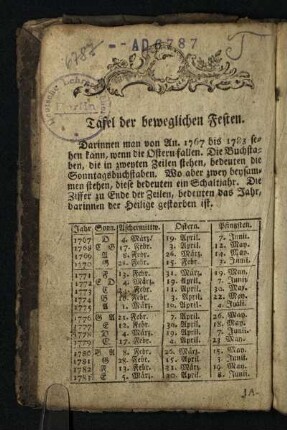 6787
AD6787
Tafel der beweglichen Festen.
Darinnen man von An. 1767 bis 1783 se-
hen kann, wenn die Ostern fallen. Die Buchsta-
ben, die in zweyten Zeilen stehen, bedeuten die
Sonntagsbuchstaben. Wo aber zwey beysam-
men stehen, diese bedeuten ein Schaltjahr. Die
Ziffer zu Ende der Zeilen, bedeuten das Jahr,
darinnen der Heilige gestorben ist.
Jahr Sonn. Aschermittw. Ostern. Pfingsten.
1767 D 4. März. 19. April. 7. Junii.
1768 C B 17. Febr. 3. April. 22. May.
1769 A 8. Febr. 26. März. 14. May.
1770 G 28. Febr. 15. April. 3. Junii.
1771 F 13. Febr. 31. März. 19. May.
1772 E D 4. März. 19. April. 7. Junii.
1773 C 11. April. 30. May.
1774 B 3. April. 22. May.
1775 A 1. März. 16. April. 4. Junii.
1776 G F 21. Febr. 7. April. 26. May.
1777 E 12. Febr. 30. März. 18. May.
1778 D 4. März. 19. April. 7. Junii.
1779 C 17. Febr. 4. April. 23. May.
1780 B A 26. März. 14. May.
1781 G 28. Febr. 15. April. 3. Junii.
1782 F 13. Febr. 31. März. 19. May.
1783 E 5. März. 20. April. 8. Junii.